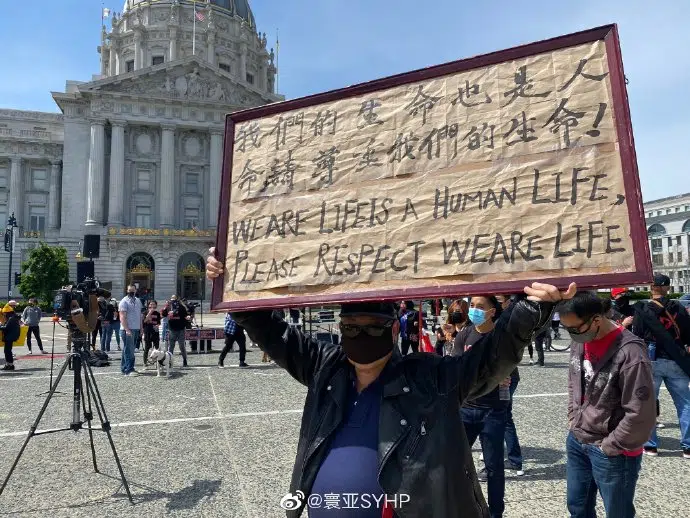 我們的生命也是人
命請尊重我們的生命!
WEARE LIFEIS A HUMAN LIFE,
PLEASE RESPECT WEARE LIFE
@寰亚SYHP